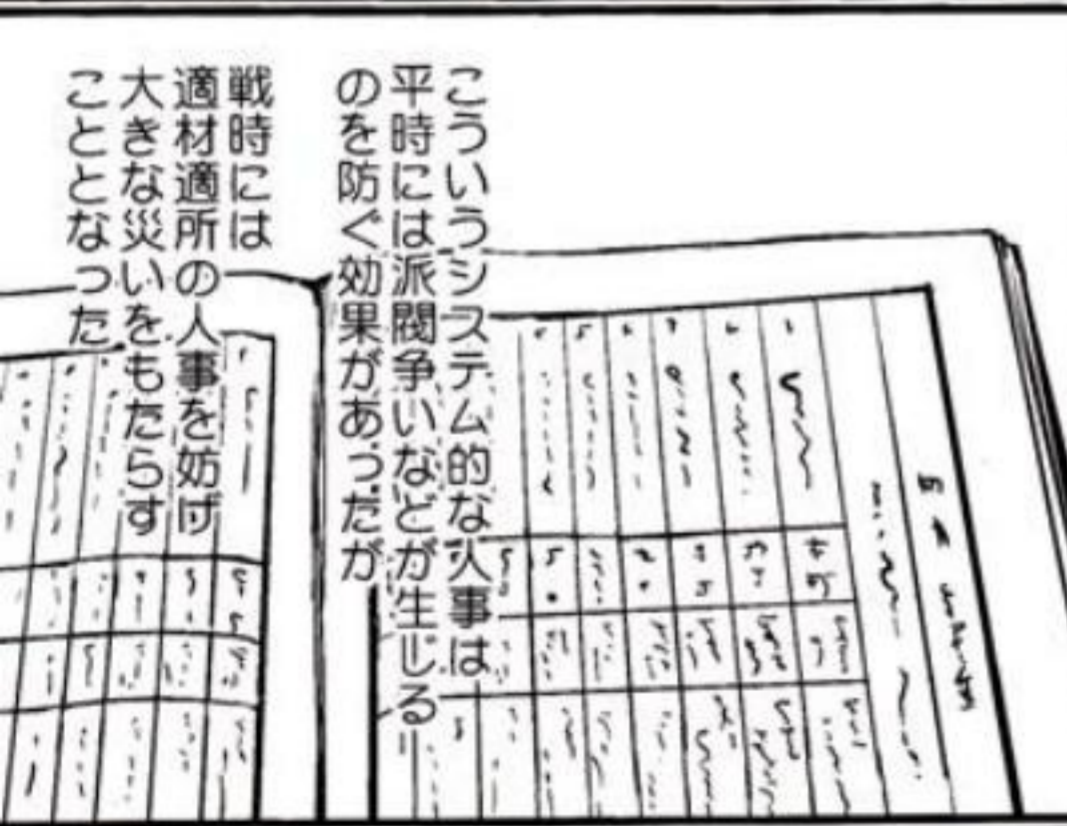 こういうシステム的な人事は
平時には派閥争いなどが生じる
のを防ぐ効果があったが
戦時には
適材適所の人事を妨げ
大きな災いをもたらす
こととなった